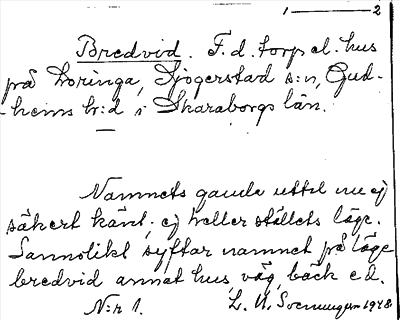 1 — 2
Bredvid. F.d. torp el. hus
på Loringa, Sjögerstad s:n, Gud-
hems h:d i Skaraborgs län.
Namnets gamla uttal nu ej
säkert känt, ej heller ställets läge.
Sannolikt syftar namnet på läge
bredvid annat hus, väg, bäck e.d.
N:r 1. L. U. 1948